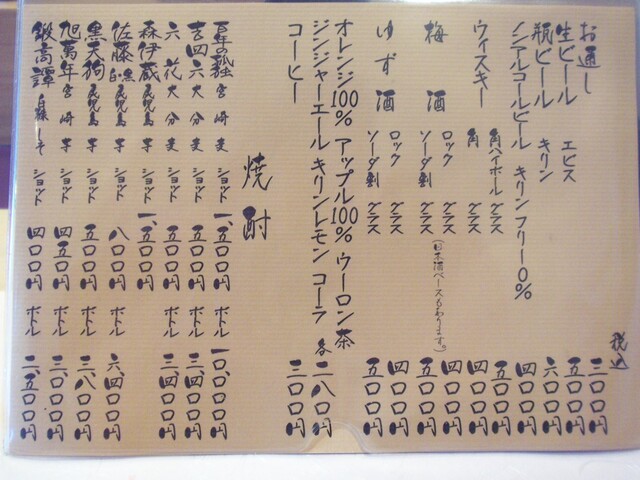 税込
お通し 三〇〇円
生ビール エビス 五〇〇円
瓶ビール キリン 六〇〇円
ノンアルコールビール キリンフリー0% 四〇〇円
ウィスキー 角ハイボール グラス 五〇〇円
角 グラス 四〇〇円
梅酒 ロック グラス 四〇〇円
ソーダ割 グラス 五〇〇円
(日本酒ベースもあります。)
ゆず酒 ロック グラス 四〇〇円
ソーダ割 グラス 五〇〇円
オレンジ100% アップル100% ウーロン茶
ジンジャーエール キリンレモン コーラ 各二八〇円
コーヒー 三〇〇円
焼酎
百年の孤独 宮崎 麦 ショット 一、五〇〇円 ボトル 一〇、〇〇〇円
吉四六 大分 麦 ショット 五〇〇円 ボトル 三、四〇〇円
六花 大分 麦 ショット 五〇〇円 ボトル 三、四〇〇円
森伊蔵 鹿児島 芋 ショット 一、五〇〇円
佐藤 鹿児島 芋 ショット 八〇〇円 ボトル 六、四〇〇円
黒天狗 鹿児島 芋 ショット 五〇〇円 ボトル 三、八〇〇円
旭萬年 宮崎 芋 ショット 四五〇円 ボトル 三、〇〇〇円
鍛高譚 しそ ショット 四〇〇円 ボトル 二、五〇〇円